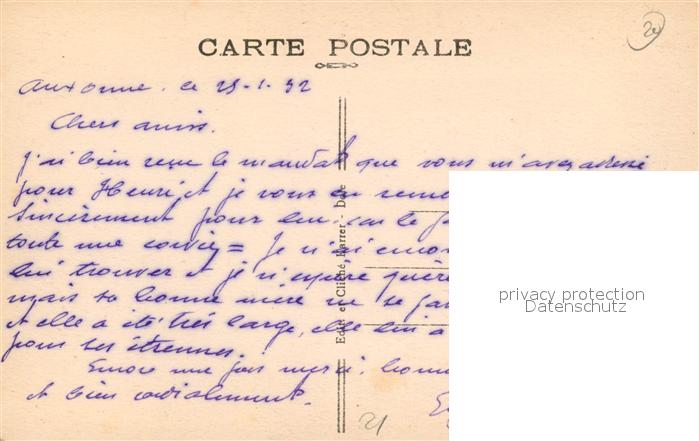 2e
CARTE POSTALE
Auxonne. ce 25-1-32
Chers amis.
J'ai bien reçu le mandat que vous m'avez adressé
pour Henri et je vous en
Sincèrement pour lui. car le
toute une = Je n'ai
lui trouver et je n'espère guère
mais sa bonne mère ne se
et elle a été très large, elle lui a
pour ses étrennes.
Encore une fois merci.
et bien cordialement.
21
Edit. et Cliché Karrer - Dole
privacy protection
Datenschutz